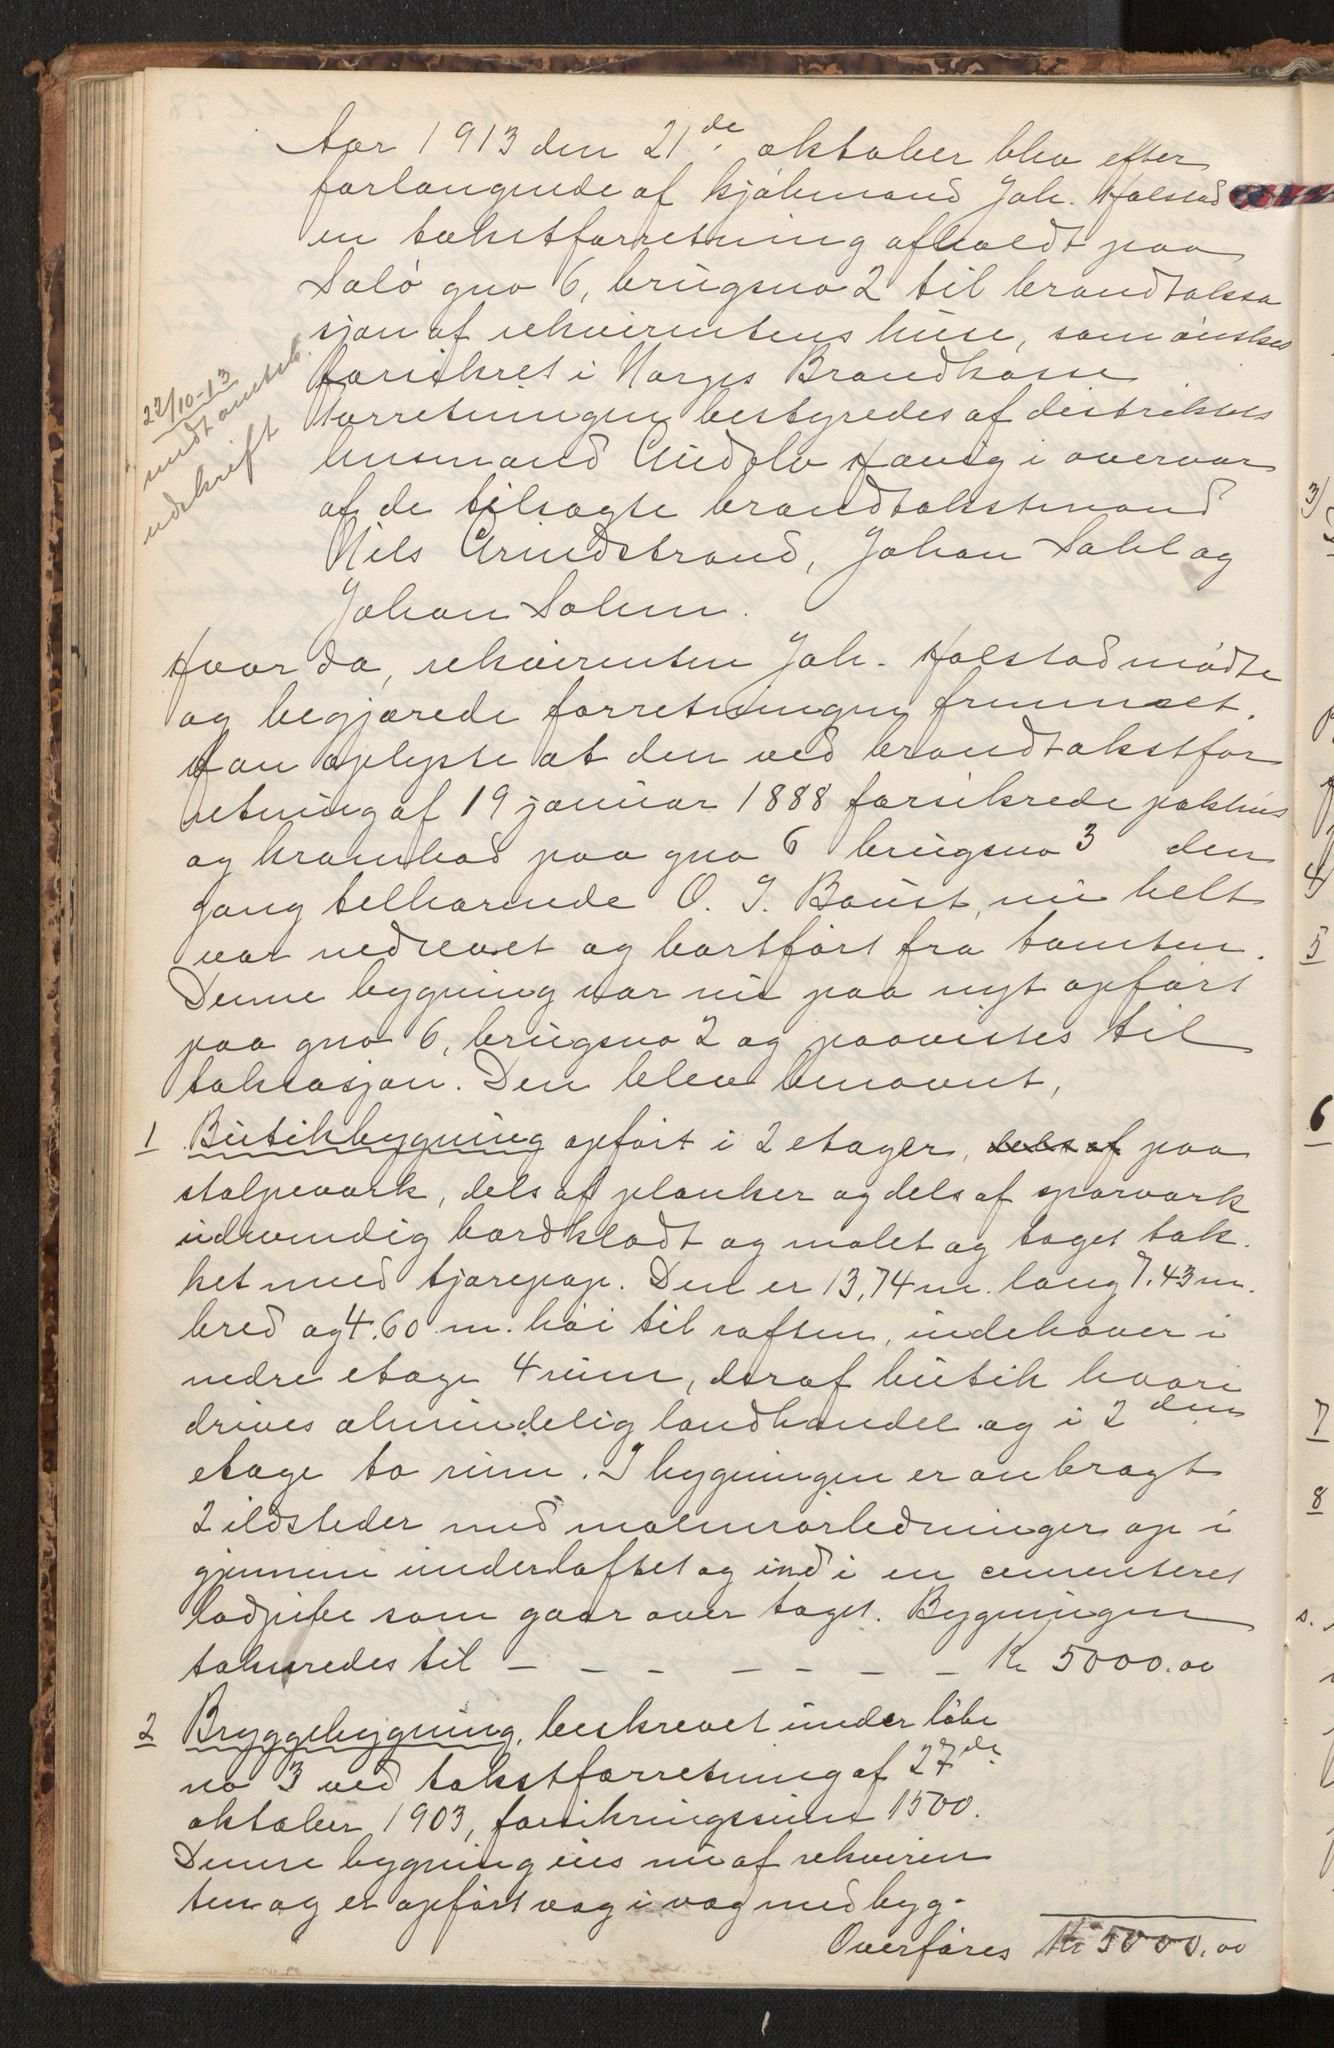 Aar 1913 den 21de oktober blev efter
forlangende af kjøbmand Joh. Halstad
en takstforretning afholdt paa
Salø gno 6, brugsno 2 til brandtaksa
sjon af rekvirentens huse, som ønskes
forsikret i Norges Brandkasse
Forretningen bestyredes af distriktets
lensmand Audolv Haug i overvær
af de tilsagte brandtakstmænd
Nils Grindstrand, Johan Dahl og
Johan Solem.
22/10-13
meddt ametsb.
udskrift
Hvor da, rekvirenten Joh. Halstad mødte
og begjærede forretningen fremmet.
Han oplyste at den ved brandtakstfor
retning af 19 januar 1888 forsikrede pakhus
og krambod paa gno 6 brugsno 3 den
gang tilhørende O. J. Boust, nu helt
var nedrevet og bortført fra tomten.
Denne bygning var nu paa nyt opført
paa gno 6, brugsno 2 og paavistes til
taksasjon. Den blev benævnt,
1 Butikbygning opført i 2 etager, dels af paa
stolpeværk, dels af planker og dels af sparværk
udvendig bordklædt og malet og taget tæk-
ket med tjærepap. Den er 13,74 m. lang 7.43 m.
bred og 4.60 m. høi til raften, indehaver i
nedre etage 4 rum, deraf butik hvori
drives almindelig landhandel og i 2den
etage to rum. I bygningen er anbragt
2 ildsteder med malmrørledninger op i
gjennem underloftet og ind i en cementeret
lodpibe som gaar over taget. Bygningen
takseredes til - - - - - - - Kr 5000.00
2 Bryggebygning, beskrevet under løbe
no 3 ved takstforretning af 27de
oktober 1903, forsikringssum 1500.
Denne bygning eies nu af rekviren
ten og er opført væg i væg med byg-
Overføres Kr 5000.00
3/
4
5
6
7
8